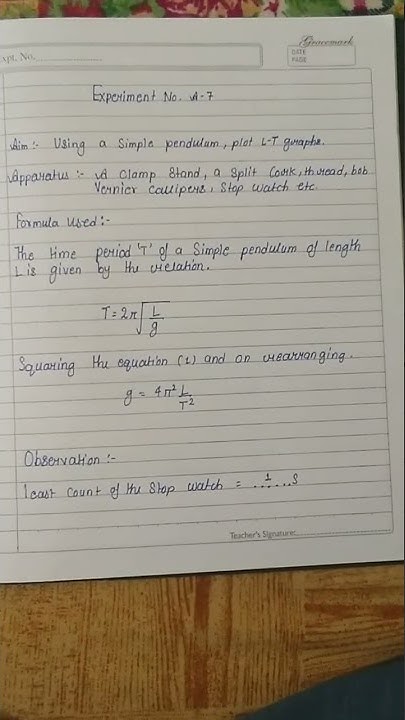 Gracemark
Expt. No.
DATE
PAGE
Experiment No. A-7
Aim :- Using a Simple pendulum, plot L-T graphs.
Apparatus :- A Clamp Stand, a Split Cork, thread, bob
Vernier Callipers, Stop watch etc.
Formula Used:-
The time period 'T' of a Simple pendulum of length
L is given by the relation.
T = 2π√(L/g)
Squaring the equation (1) and on rearranging.
g = 4π² L/T²
Observation :-
least count of the Stop watch = ...1...s
Teacher's Signature: